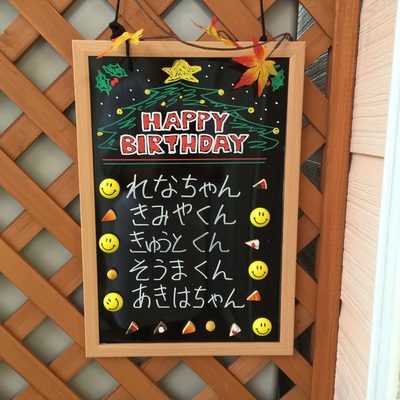 HAPPY
BIRTHDAY
れなちゃん
きみやくん
きゅうとくん
そうまくん
あきはちゃん